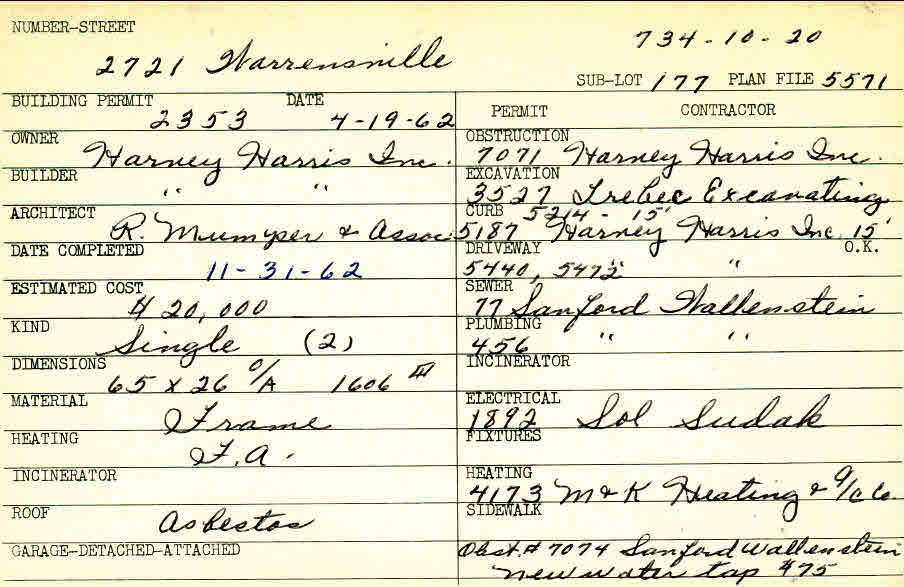 NUMBER-STREET
734-10-20
2721 Warrensville
SUB-LOT 177 PLAN FILE 5571
BUILDING PERMIT DATE
2353 4-19-62
OWNER
Harvey Harris Inc.
BUILDER
" "
ARCHITECT
R. Mumper & Assoc.
DATE COMPLETED
11-31-62
ESTIMATED COST
$ 20,000
KIND
Single (2)
DIMENSIONS
65 x 26 O/A 1606
MATERIAL
Frame
HEATING
F.A.
INCINERATOR
ROOF
Asbestos
GARAGE-DETACHED-ATTACHED
PERMIT CONTRACTOR
OBSTRUCTION
7071 Harvey Harris Inc.
EXCAVATION
3527 Trebec Excavating
CURB 5214 - 15'
5187 Harvey Harris Inc 15'
DRIVEWAY O.K.
5440, 5472 "
SEWER
77 Sanford Wallenstein
PLUMBING
456 " "
INCINERATOR
ELECTRICAL
1892 Sol Sudak
FIXTURES
HEATING
4173 M & K Heating & A/C Co.
SIDEWALK
Obst. # 7074 Sanford Wallenstein
new water tap #75